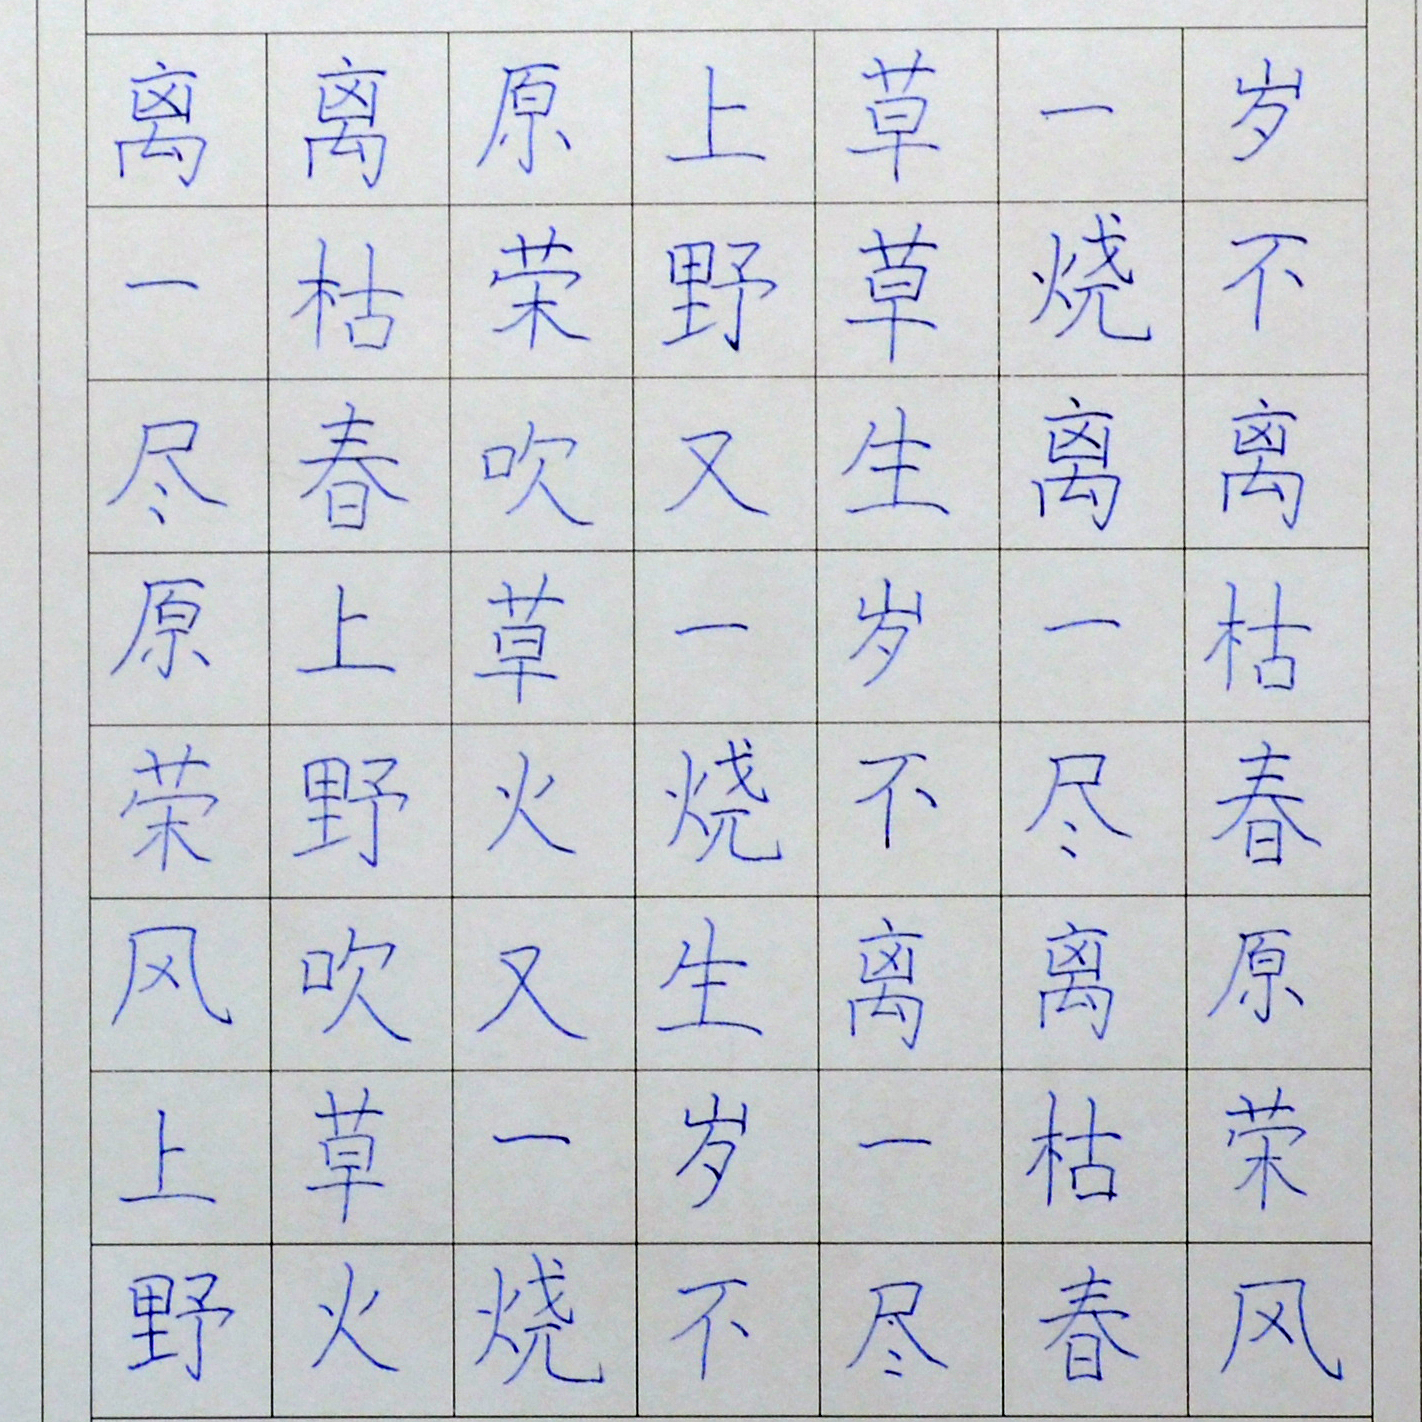 离离原上草一岁
一枯荣野草烧不
尽春吹又生离离
原上草一岁一枯
荣野火烧不尽春
风吹又生离离原
上草一岁一枯荣
野火烧不尽春风